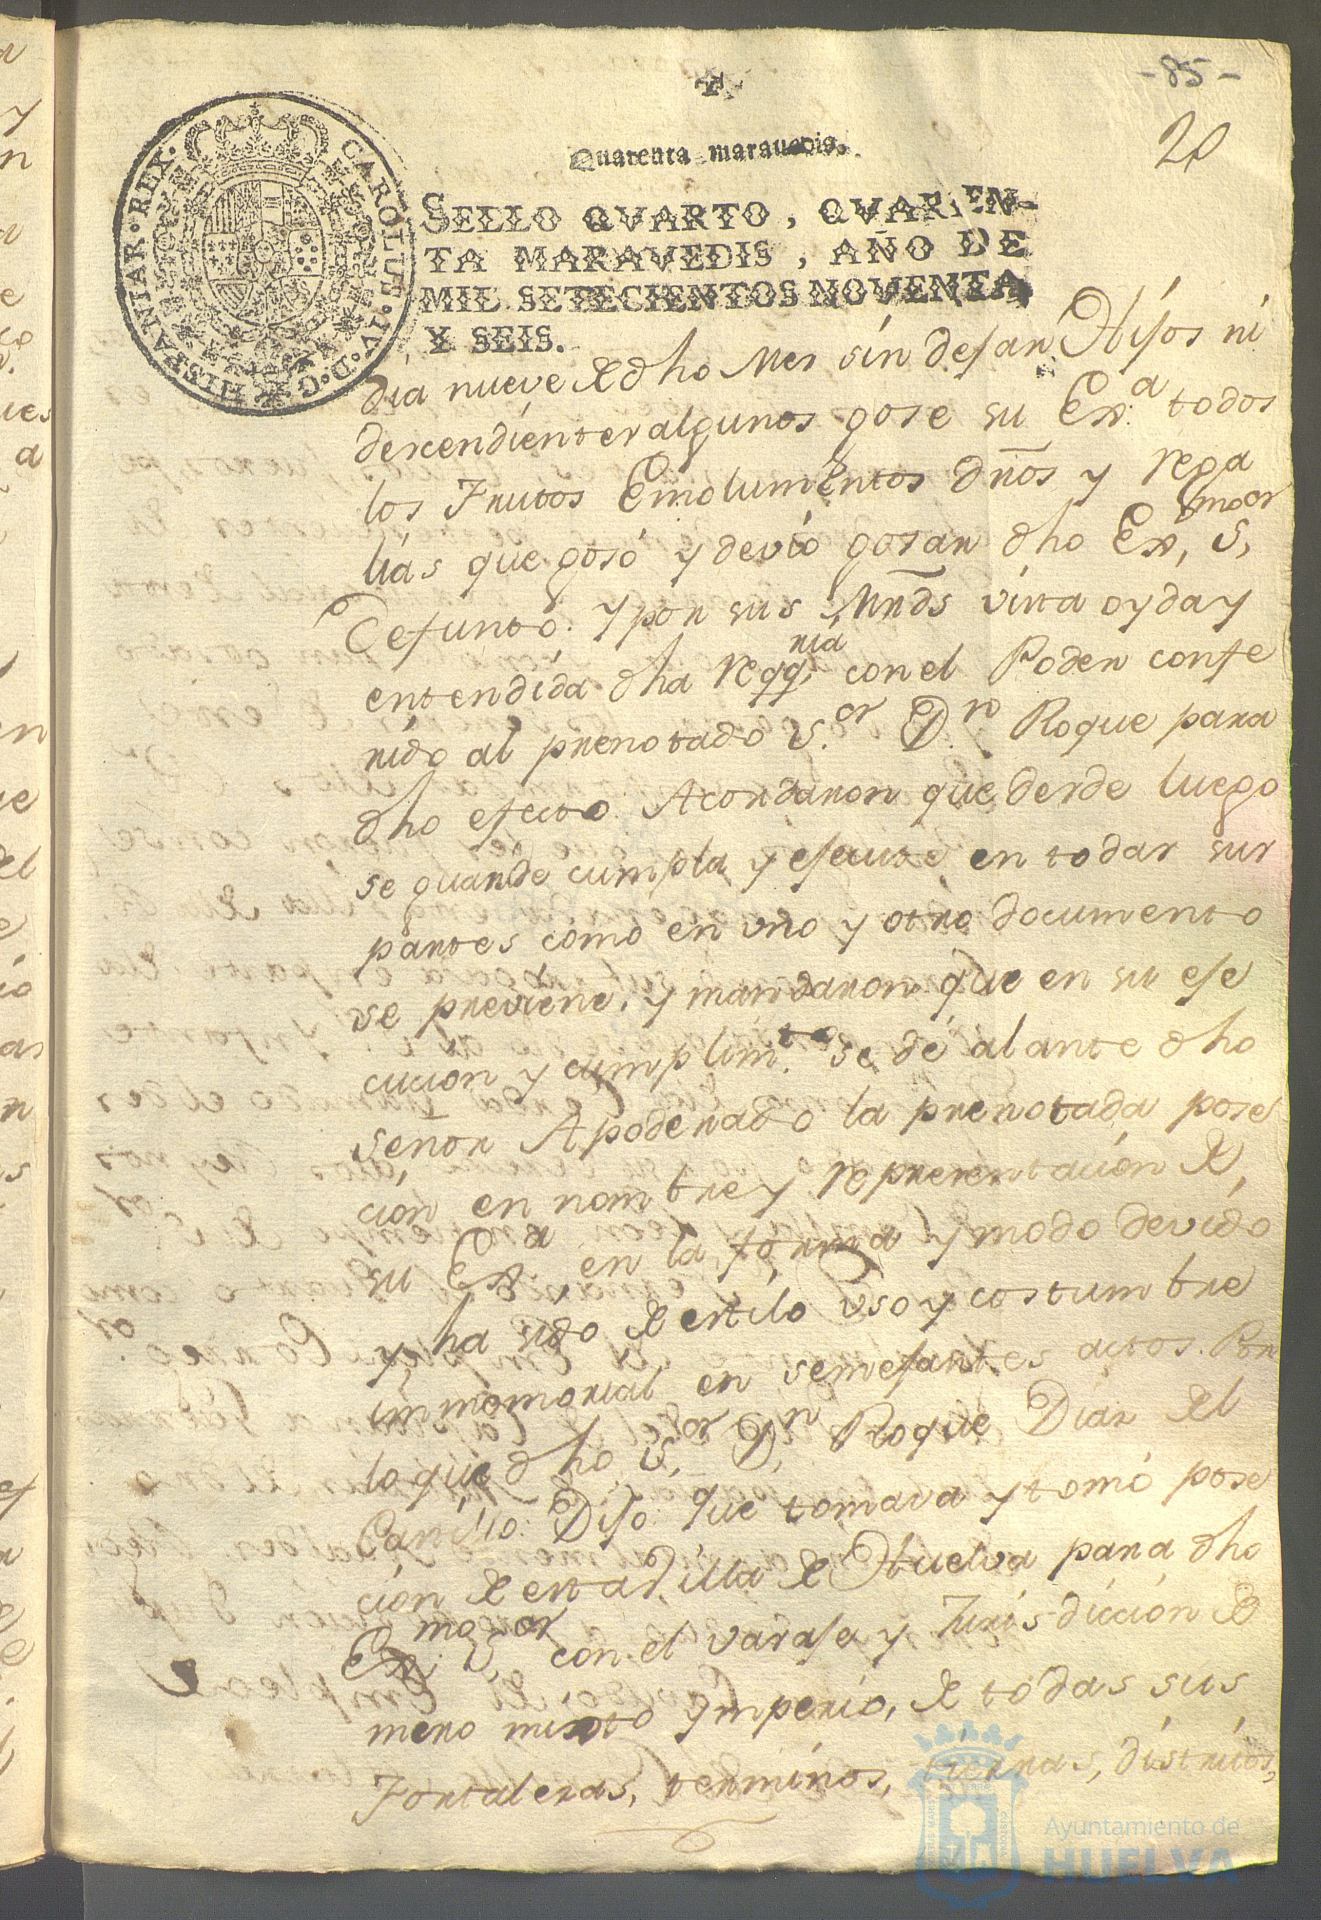 -85-
20
Quarenta maravedis.
SELLO QVARTO, QVAREN-
TA MARAVEDIS, AÑO DE
MIL SETECIENTOS NOVENTA
Y SEIS.
CAROLUS·IV·D·G·HISPANIAR·REX·
dia nueve de dho Mes sin dejar Hijos ni
descendientes algunos gose su Exa. todos
los Frutos Emolumentos dr̃os y rega
lias que gosó y devió gosar dho Exmo. Sor.
Defunto. y por sus Mr̃ds vista oyda y
entendida dha reqqnia. con el Poder confe
rido al prenotado Sor. Dn. Roque para
dho efecto. Acordaron que desde luego
se guarde cumpla y ejecute en todas sus
partes como en uno y otro documento
se previene, y mandaron que en su eje
cucion y cumplimto. se dé al ante dho
señor Apoderado la prenotada pose
cion en nombre y representacion de
su Exa. en la forma y modo devido
y ha sido de estilo uso y costumbre
immemorial en semejantes actos. Por
lo que dho Sor. Dn. Roque Diaz del
Castillo: Dijo: Que tomava y tomó pose
cion de esta Villa de Huelva para dho
Exmo. Sor. con el varaje y Jurisdiccion de
mero misto Ymperio, de todas sus
Fortalezas, terminos, tierras, distritos,
Ayuntamiento de
HUELVA